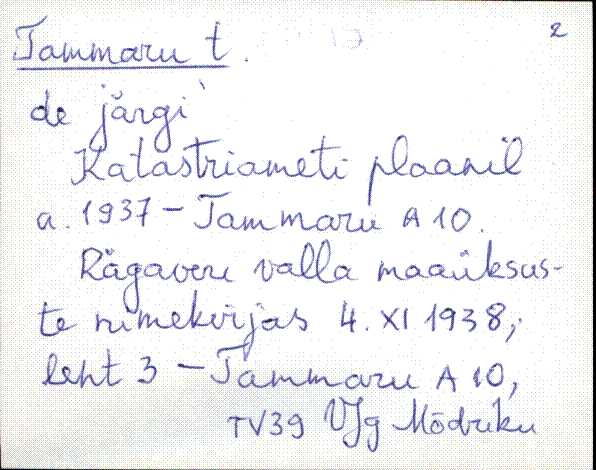 2
Tammaru t.
de järgi
Katastriameti plaanil
a. 1937 – Tammaru A 10.
Rägavere valla maaüksus-
te nimekirjas 4. XI 1938,
leht 3 – Tammaru A 10,
TV39 VJg Mõdriku